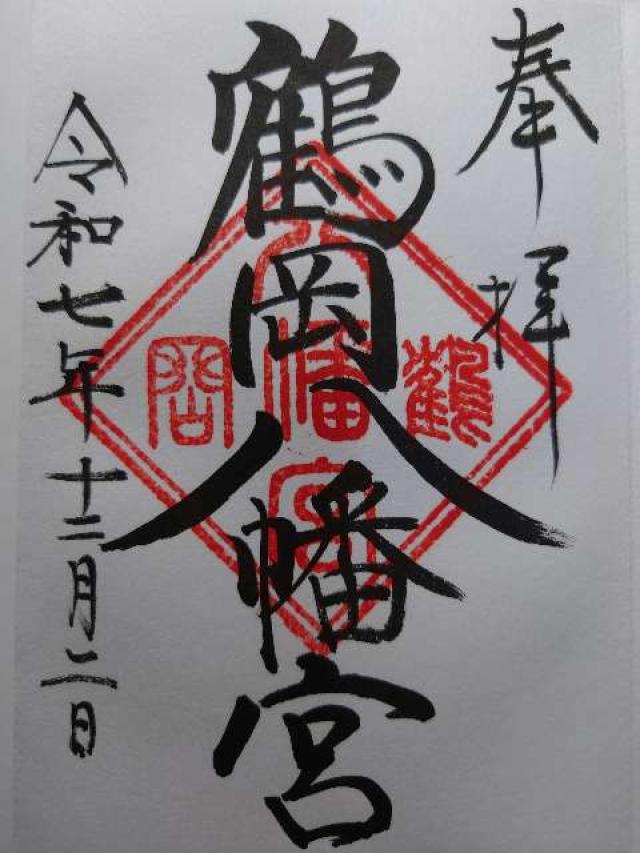 奉拝
鶴岡八幡宮
鶴岡八幡宮
令和七年十二月二日